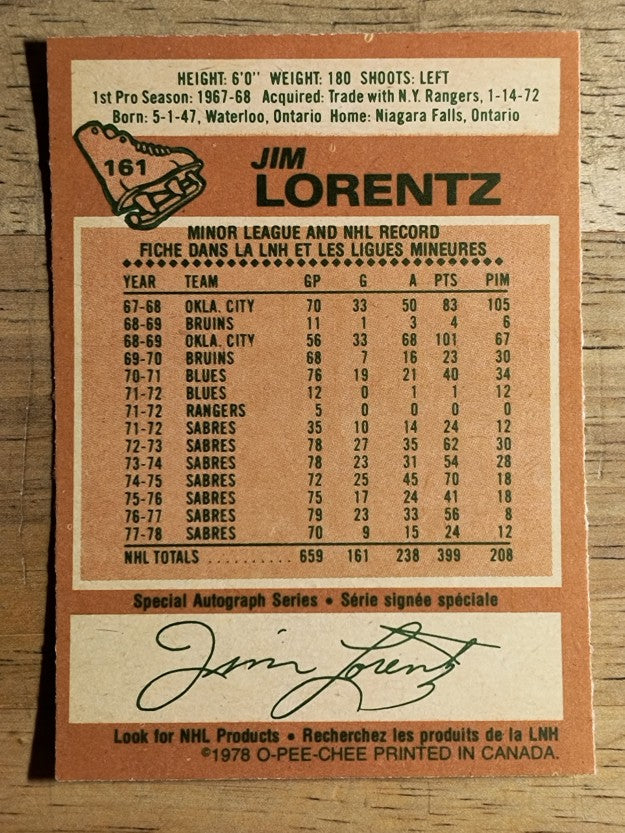 HEIGHT: 6'0" WEIGHT: 180 SHOOTS: LEFT
1st Pro Season: 1967-68 Acquired: Trade with N.Y. Rangers, 1-14-72
Born: 5-1-47, Waterloo, Ontario Home: Niagara Falls, Ontario
161
JIM
LORENTZ
MINOR LEAGUE AND NHL RECORD
FICHE DANS LA LNH ET LES LIGUES MINEURES
YEAR TEAM GP G A PTS PIM
67-68 OKLA. CITY 70 33 50 83 105
68-69 BRUINS 11 1 3 4 6
68-69 OKLA. CITY 56 33 68 101 67
69-70 BRUINS 68 7 16 23 30
70-71 BLUES 76 19 21 40 34
71-72 BLUES 12 0 1 1 12
71-72 RANGERS 5 0 0 0 0
71-72 SABRES 35 10 14 24 12
72-73 SABRES 78 27 35 62 30
73-74 SABRES 78 23 31 54 28
74-75 SABRES 72 25 45 70 18
75-76 SABRES 75 17 24 41 18
76-77 SABRES 79 23 33 56 8
77-78 SABRES 70 9 15 24 12
NHL TOTALS .......... 659 161 238 399 208
Special Autograph Series • Série signée spéciale
Jim Lorentz
Look for NHL Products • Recherchez les produits de la LNH
©1978 O-PEE-CHEE PRINTED IN CANADA.